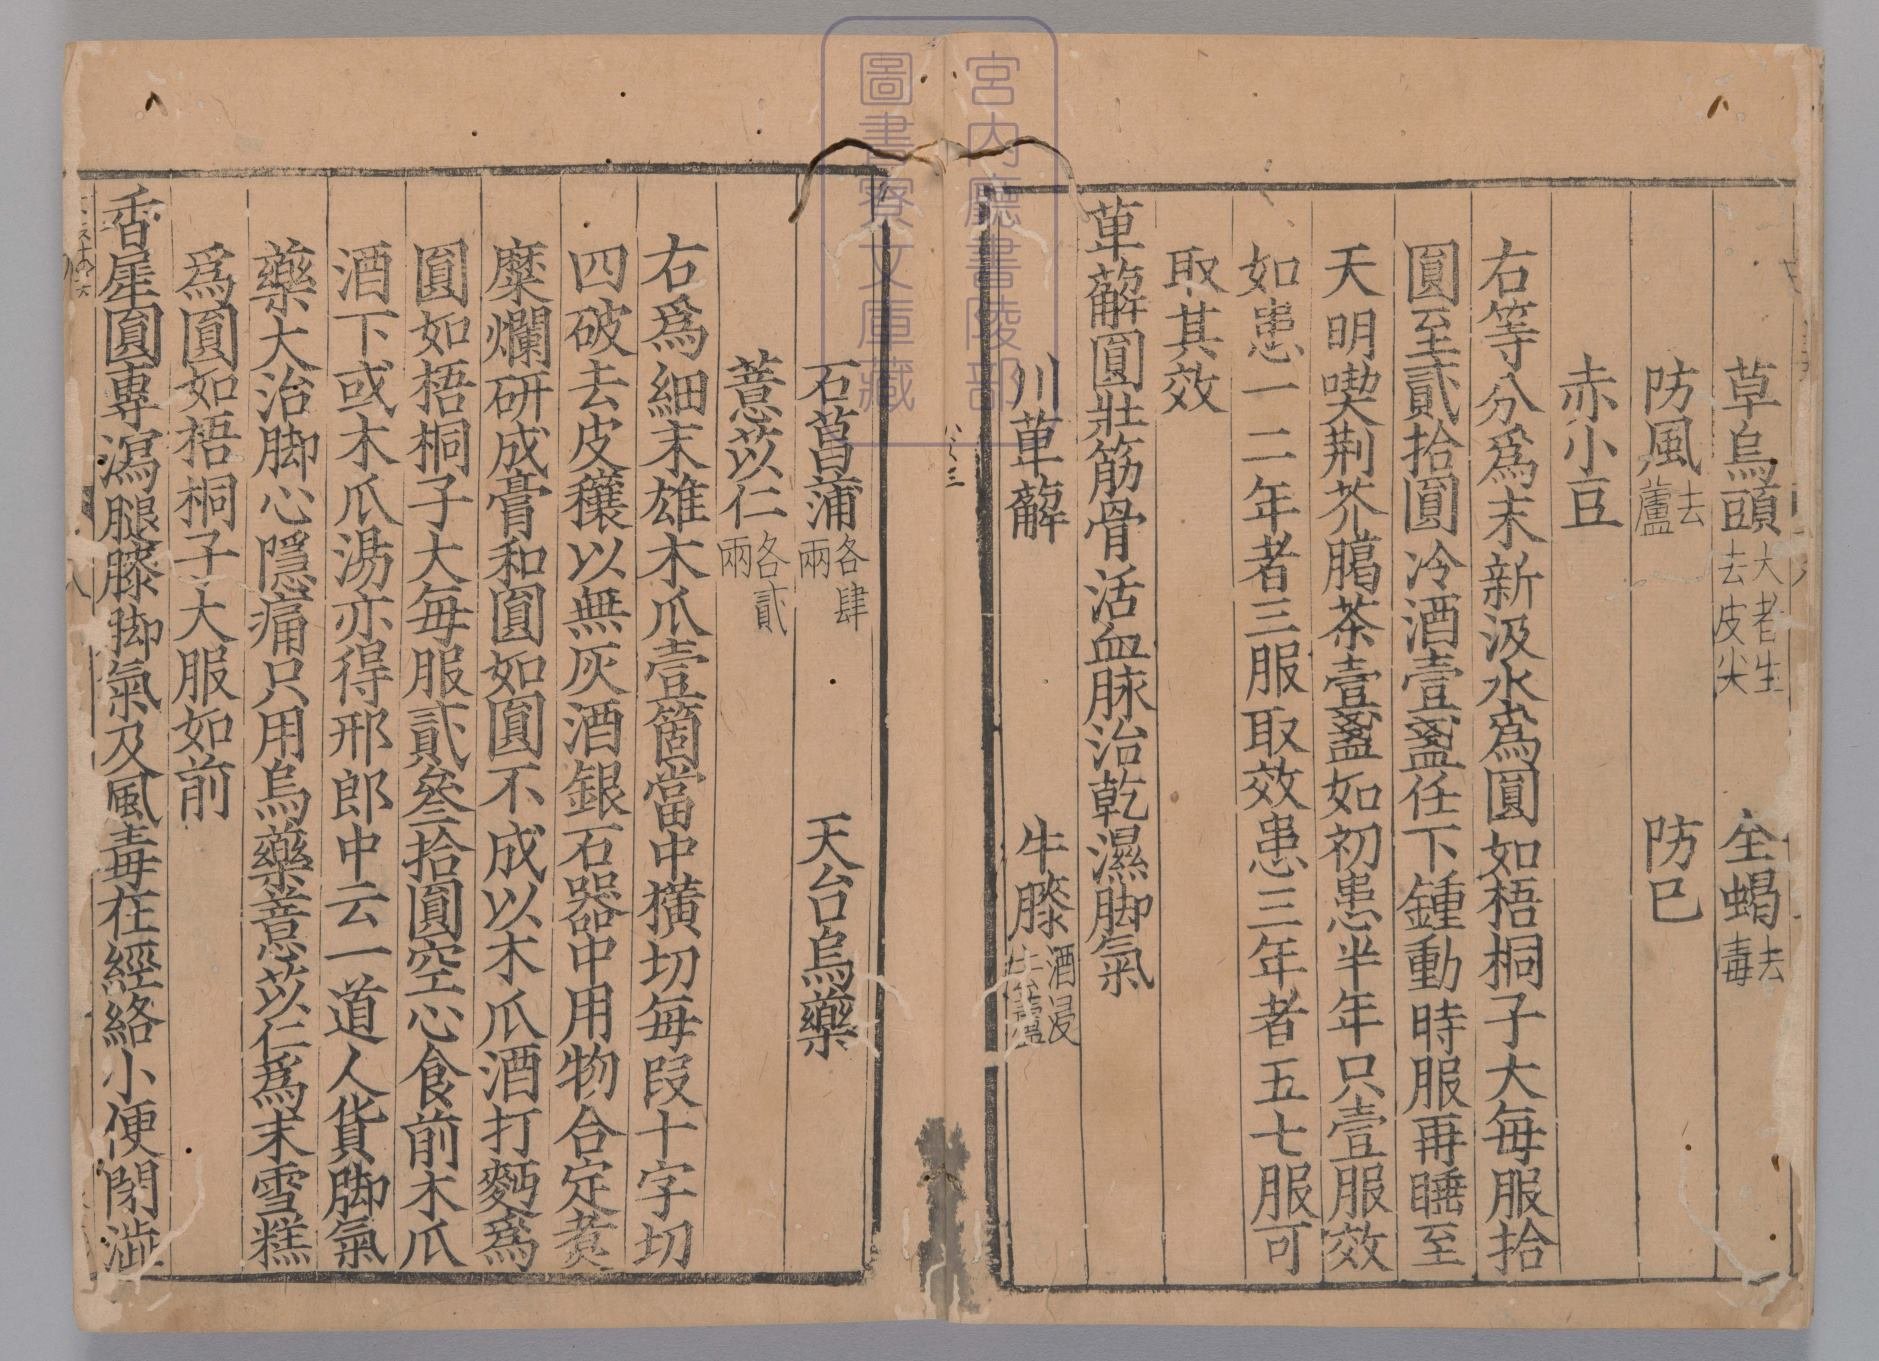 草烏頭大者生去皮尖　全蝎去毒
防風去蘆　防巳
赤小豆
右等分爲末新汲水爲圓如梧桐子大每服拾
圓至貳拾圓冷酒壹盞任下鍾動時服再睡至
天明喫荆芥臈茶壹盞如初患半年只壹服效
如患一二年者三服取效患三年者五七服可
取其效
萆薢圓壯筋骨活血脉治乾濕脚氣
川萆薢　牛膝酒浸
石菖蒲各肆兩　天台烏藥
薏苡仁各貳兩
右爲細末雄木爪壹箇當中横切每段十字切
四破去皮穰以無灰酒銀石器中用物合定煑
糜爛研成膏和圓如圓不成以木爪酒打麫爲
圓如梧桐子大每服貳叄拾圓空心食前木爪
酒下或木爪湯亦得邢郎中云一道人貨脚氣
藥大治脚心隱痛只用烏藥薏苡仁爲末雪糕
爲圓如梧桐子大服如前
香犀圓專瀉腿膝脚氣及風毒在經絡小便閉澁
宮内廳書陵部
圖書寮文庫藏